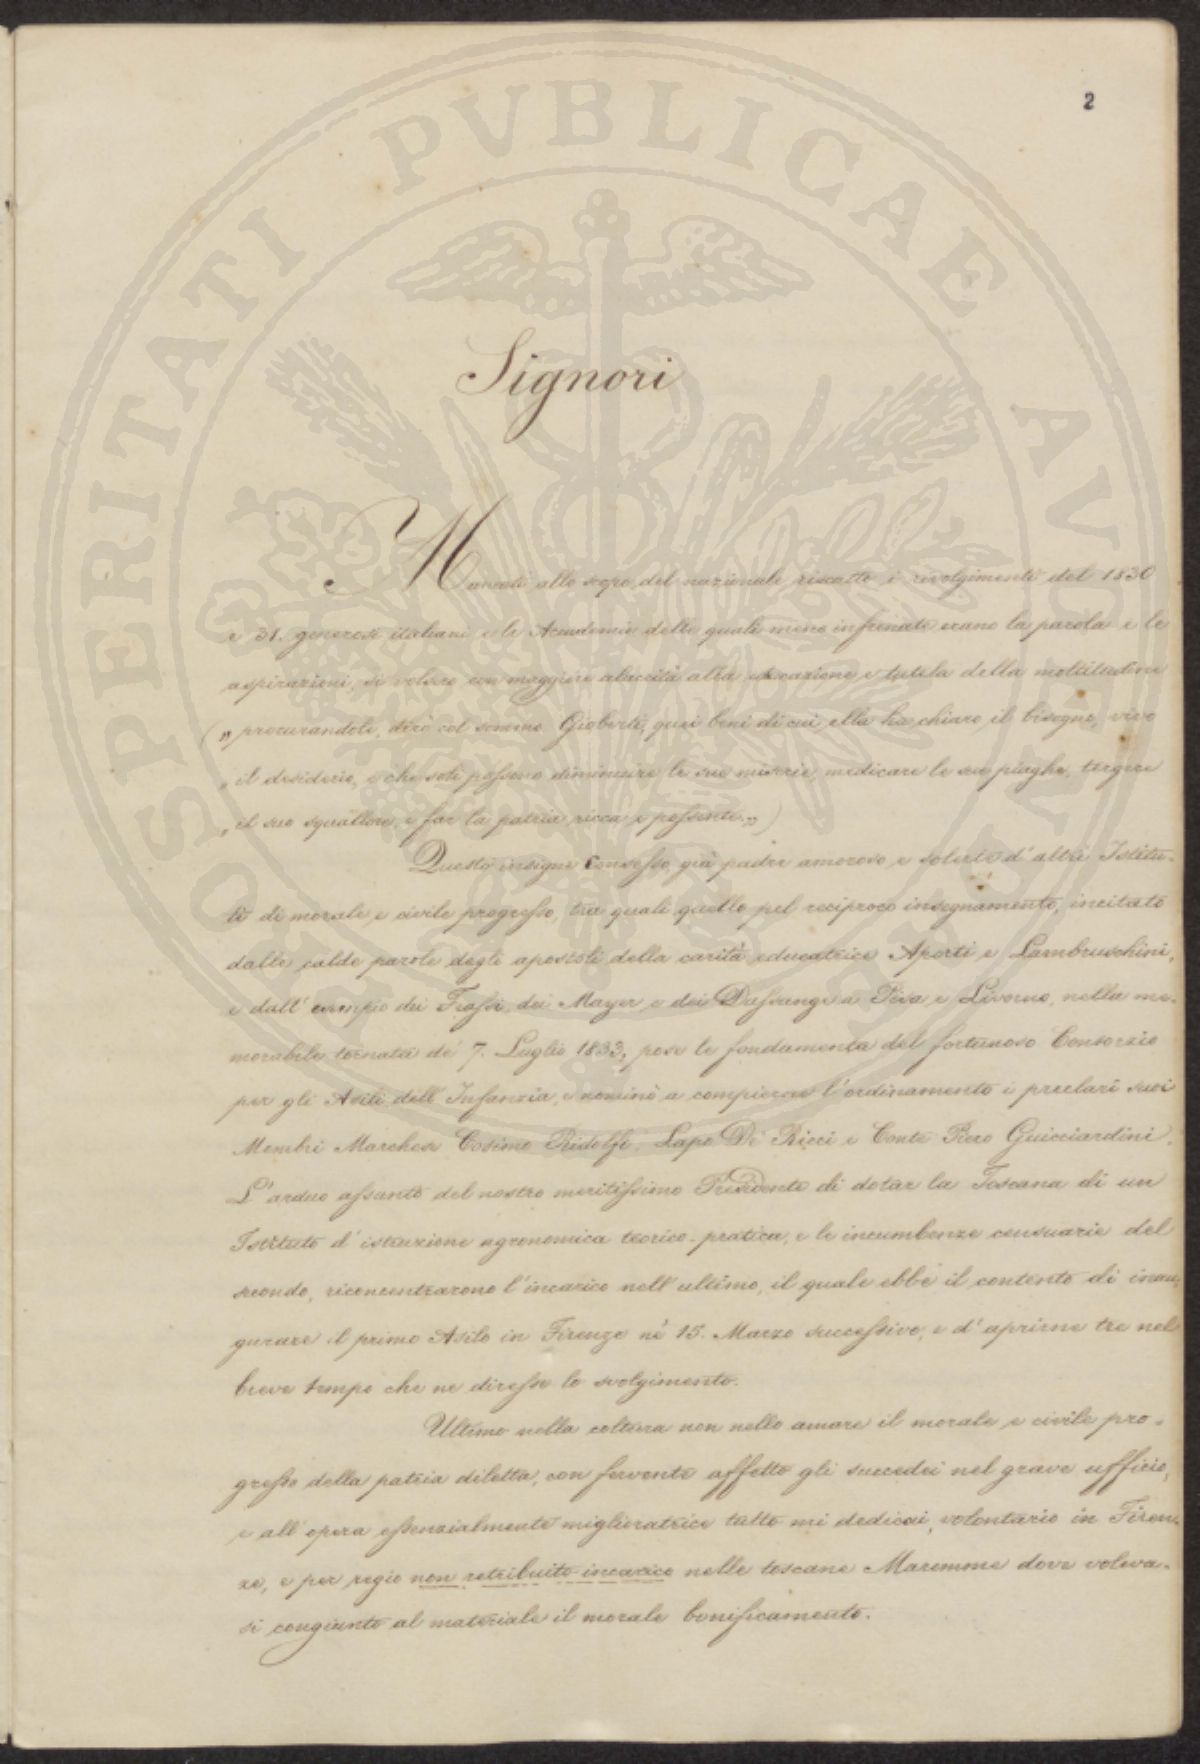 2
Signori
Mancati allo scopo del nazionale riscatto i rivolgimenti del 1830
e 31. generosi italiani e le Accademie delle quali meno infrenate erano la parola e le
aspirazioni, si volsero con maggiore alacrità alla educazione e tutela della moltitudine
(„ procurandole, dirò col sommo Gioberti, quei beni di cui ella ha chiaro il bisogno, vivo
„ il desiderio, e che soli possono diminuire le sue miserie, medicare le sue piaghe, tergere
„ il suo squallore, e far la patria ricca e possente.„)
Questo insigne Consesso, già padre amoroso e solerte d'altri Istitu-
ti di morale e civile progresso, tra quali quello pel reciproco insegnamento, incitato
dalle calde parole degli apostoli della carità educatrice Aporti e Lambruschini,
e dall' esempio dei Frassi, dei Mayer e dei Dussauge a Pisa e Livorno, nella me-
morabile tornata de' 7. Luglio 1833, pose le fondamenta del fortunoso Consorzio
per gli Asili dell' Infanzia, e nominò a compierne l'ordinamento i preclari suoi
Membri Marchese Cosimo Ridolfi, Lapo De' Ricci e Conte Piero Guicciardini.
L'arduo assunto del nostro meritissimo Presidente di dotar la Toscana di un
Istituto d'istruzione agronomica teorico-pratica, e le incumbenze censuarie del
secondo, riconcentrarono l'incarico nell' ultimo, il quale ebbe il contento di inau-
gurare il primo Asilo in Firenze nè 15. Marzo successivo, e d'aprirne tre nel
breve tempo che ne diresse lo svolgimento.
Ultimo nella coltura non nello amare il morale e civile pro-
gresso della patria diletta, con fervente affetto gli succedei nel grave ufficio,
e all' opera essenzialmente miglioratrice tutto mi dedicai, volontario in Firen-
ze, e per regio non retribuito incarico nelle toscane Maremme dove voleva-
si congiunto al materiale il morale bonificamento.
PROSPERITATI PVBLICAE AVGENDAE